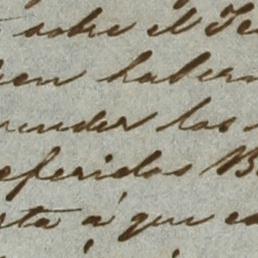 sobre el Te
en haber
ender las
eferidos B
rta á que es